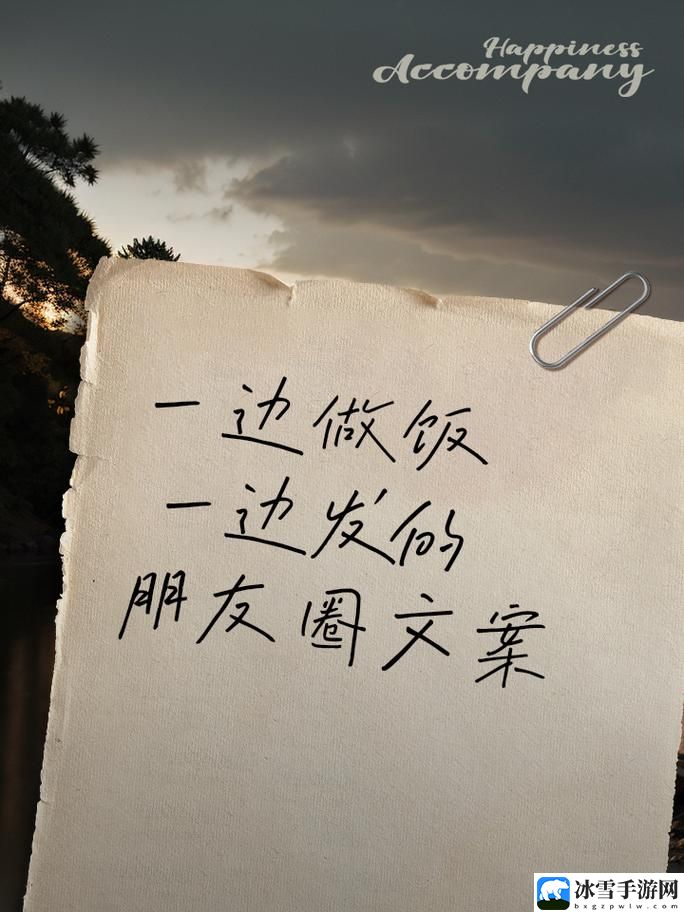 Happiness
Accompany
一边做饭
一边发的
朋友圈文案
冰雪手游网
bxgzpwlw.com